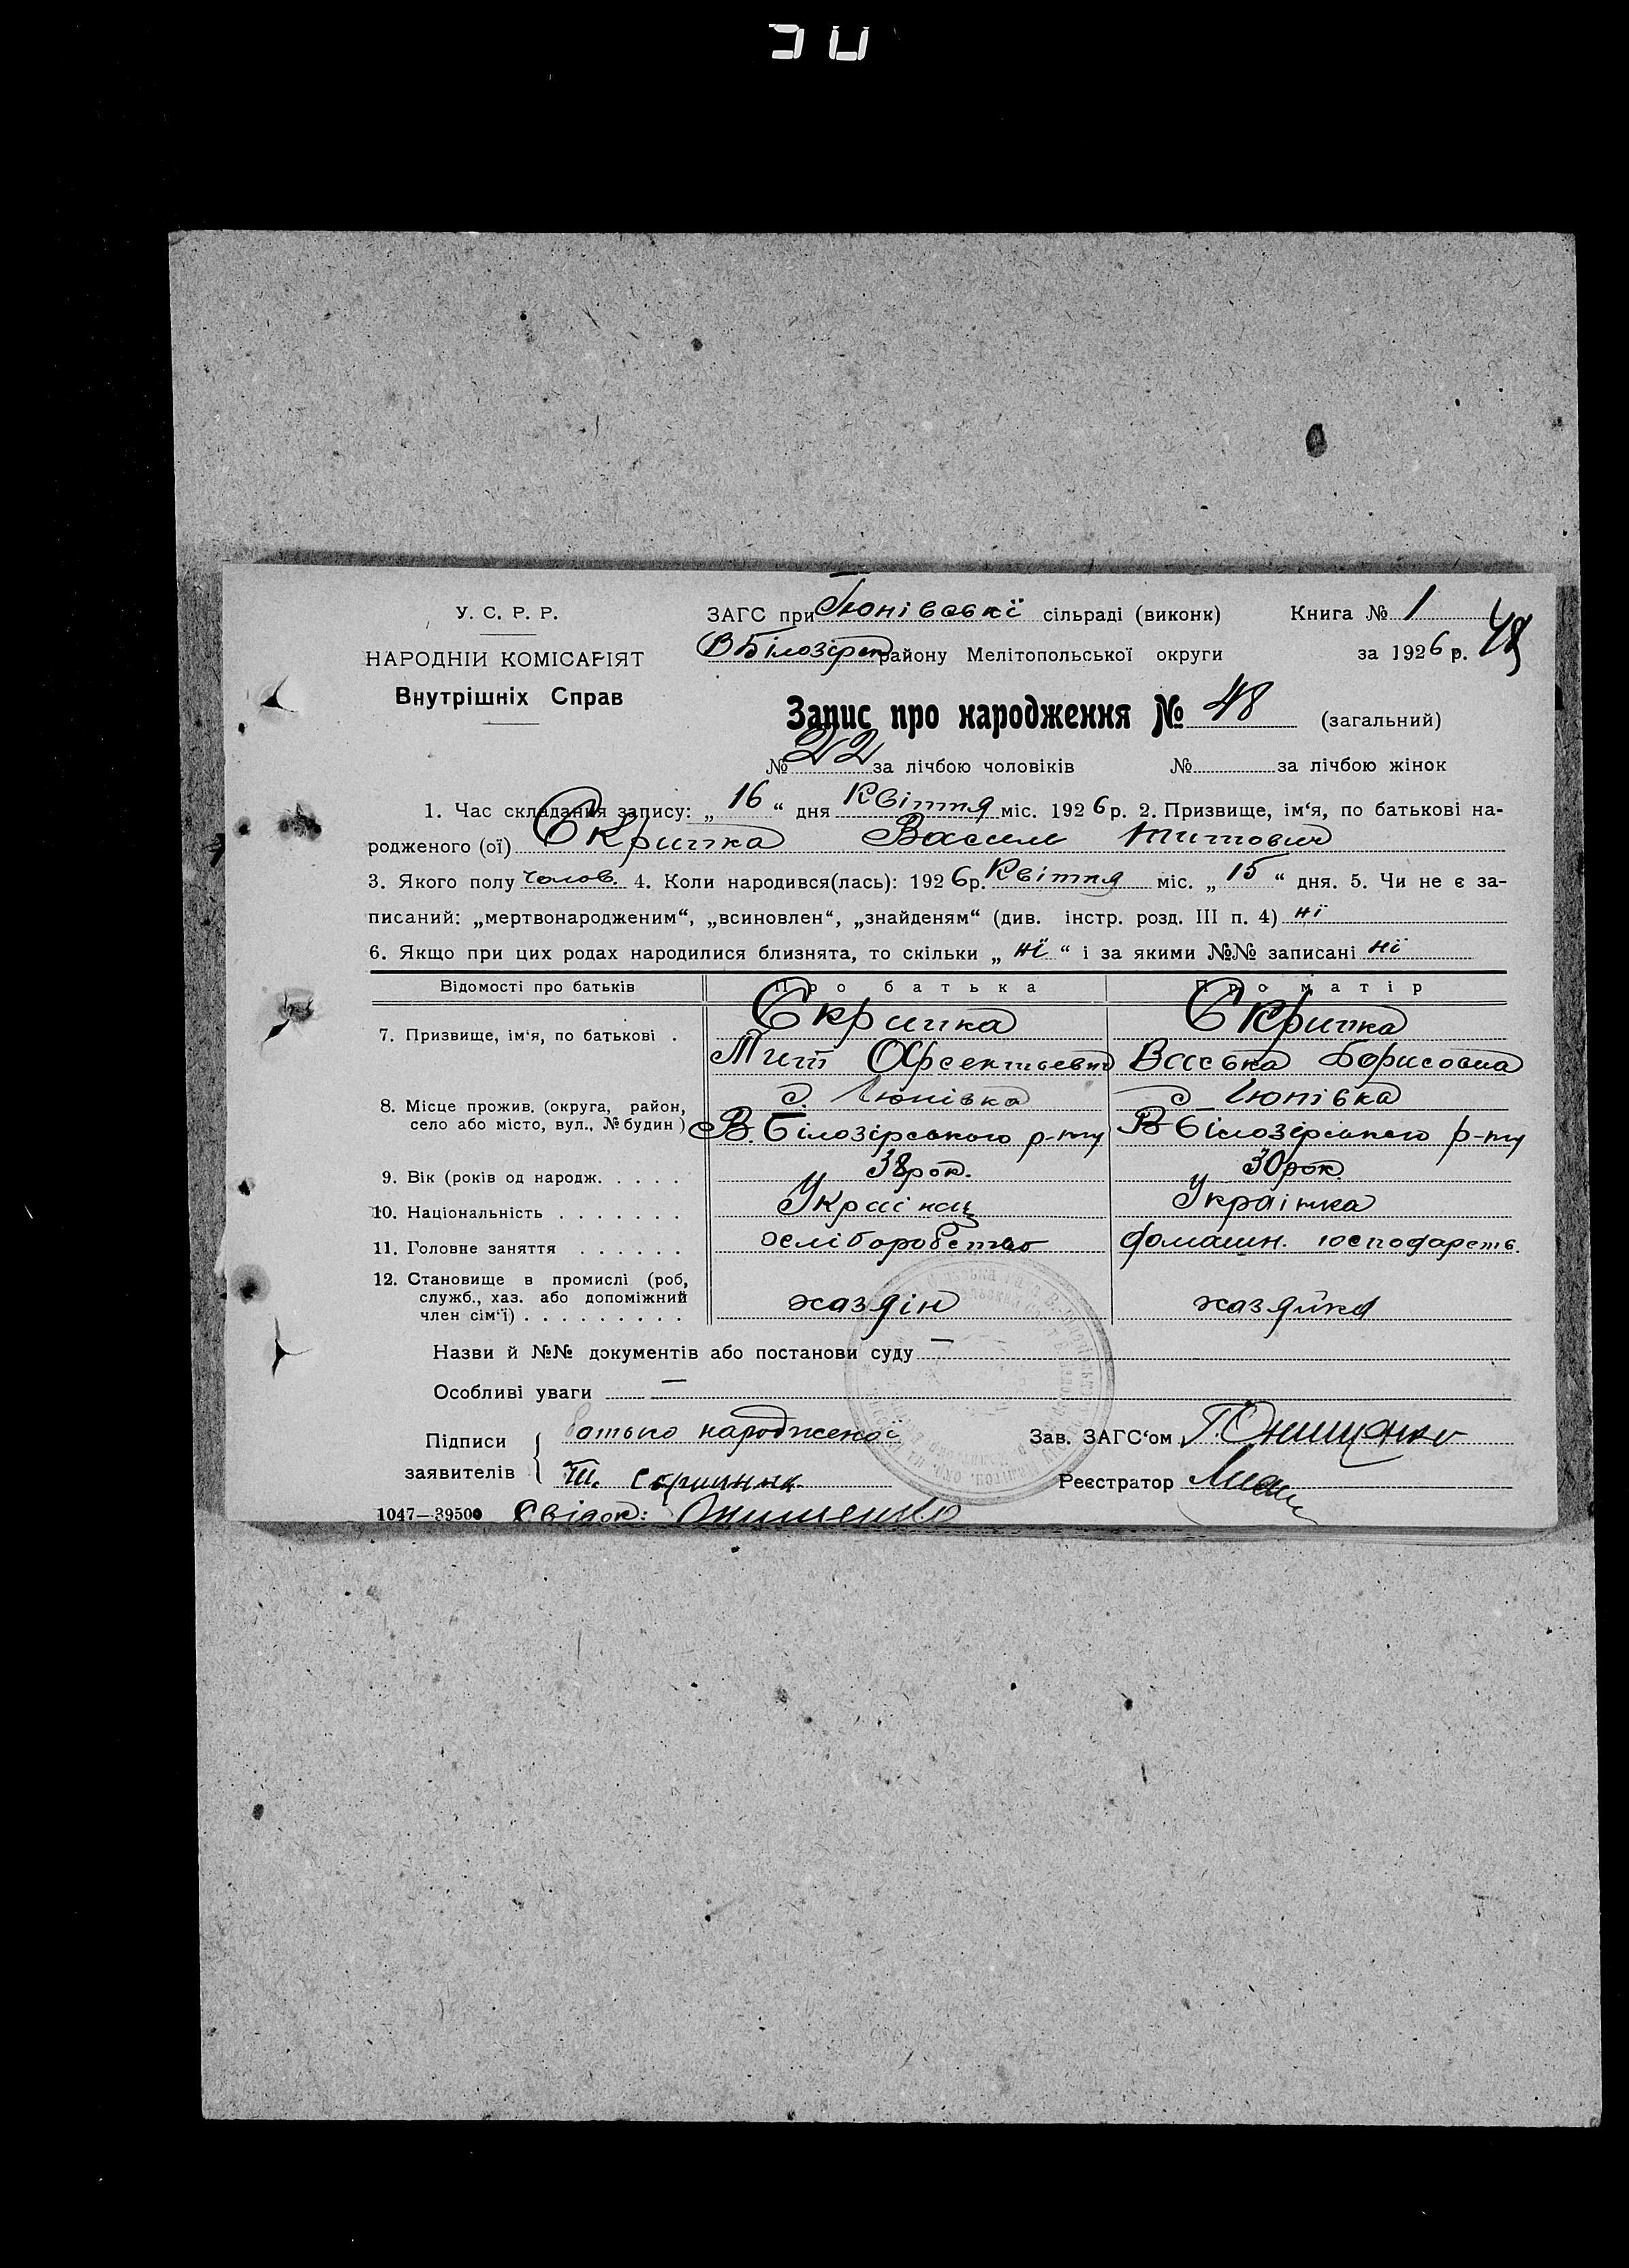 У. С. Р. Р.
НАРОДНІЙ КОМІСАРІЯТ
Внутрішніх Справ
ЗАГС при Гюнівські сільраді (виконк) Книга № 1
ВБілозірськ району Мелітопольської округи за 1926 р. 48
Запис про народження № 48 (загальний)
№ 22 за лічбою чоловіків № за лічбою жінок
1. Час складання запису: „16“ дня Квітня міс. 1926 р. 2. Призвище, ім‘я, по батькові на-
родженого (ої) Скрипка Васил Титович
3. Якого полу чолов. 4. Коли народився(лась): 1926 р. Квітня міс. „15“ дня. 5. Чи не є за-
писаний: „мертвонародженим“, „всиновлен“, „знайденям“ (див. інстр. розд. III п. 4) ні
6. Якщо при цих родах народилися близнята, то скільки „ні“ і за якими №№ записані ні
Відомості про батьків Про батька Про матір
7. Призвище, ім‘я, по батькові . Скрипка Скрипка
Тит Васька Борисовна
8. Місце прожив. (округа, район, с. Гюнівка с Гюнівка
село або місто, вул., № будин) В. Білозірського р-ну В Білозірського р-ну
9. Вік (років од народж. . . . . 38 рок. 30 рок.
10. Національність . . . . . . . Украінец Украінка
11. Головне заняття . . . . . . хліборобство домашн. господарств.
12. Становище в промислі (роб,
служб., хаз. або допоміжний хазяін хазяйка
член сім‘ї) . . . . . . . . .
Назви й №№ документів або постанови суду —
Особливі уваги —
Підписи Батько народженої Зав. ЗАГС‘ом Г. Онищенко
заявителів Т. Реєстратор
1047—39500 Свідок: Онищенко